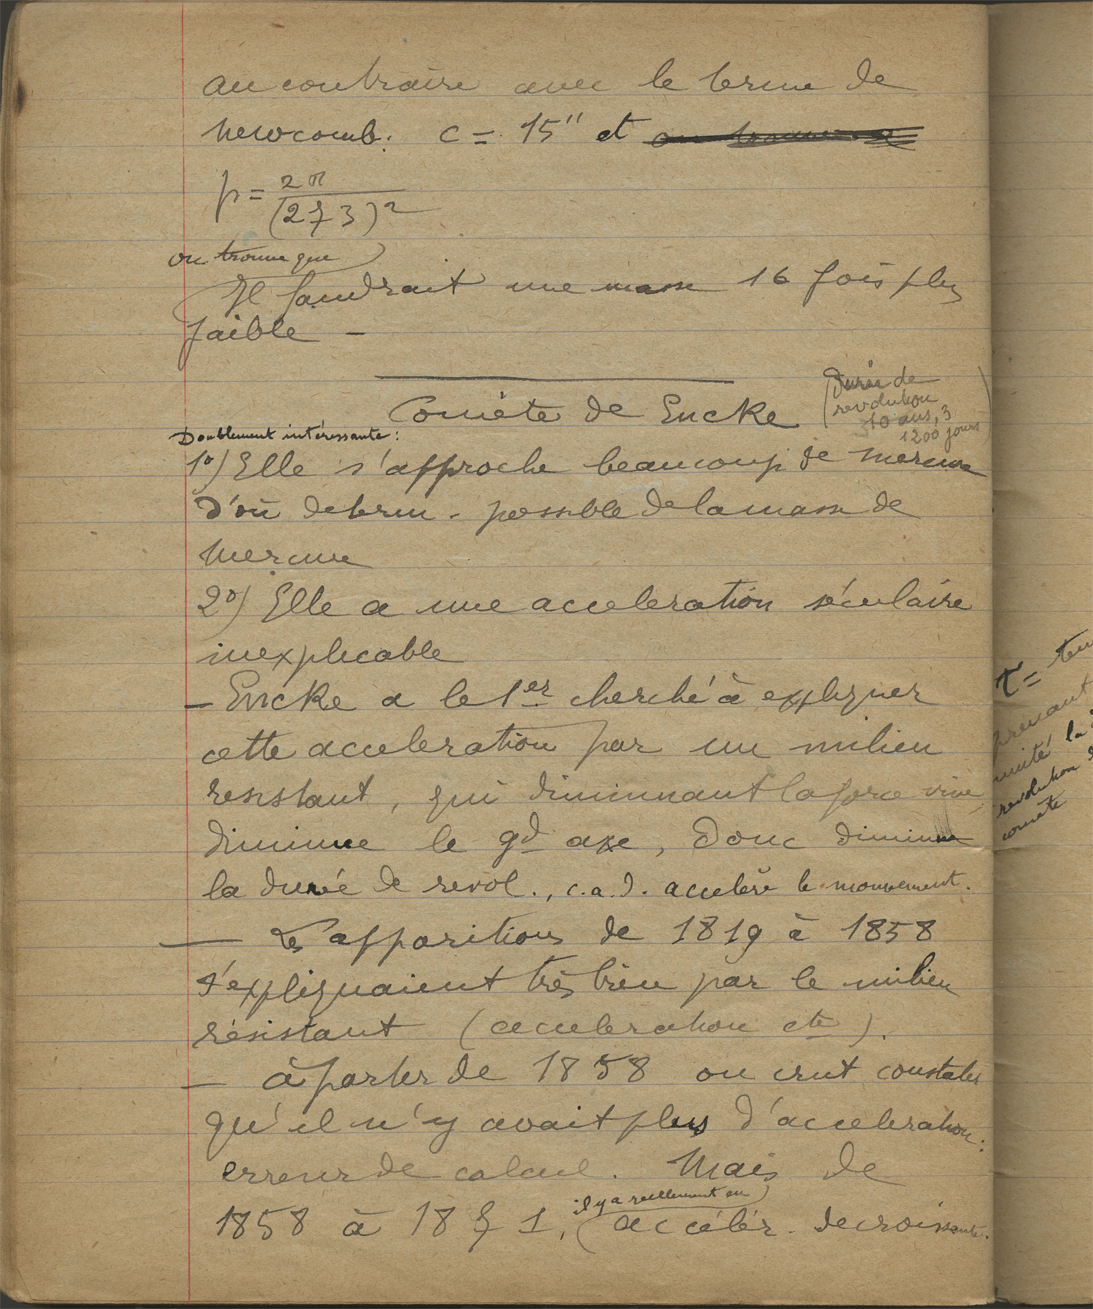 au contraire avec le terme de
Newcomb. c = 15" et
p = 2π
(273)²
on trouve que
Il faudrait une masse 16 fois plus
faible —
Comète de Encke
(Durée de
revolution
10 ans, 3
1200 jours)
Doublement intéressante :
1°) Elle s'approche beaucoup de Mercure
D'où determ. possible de la masse de
Mercure
2°) Elle a une acceleration séculaire
inexplicable
— Encke a le 1er cherché à expliquer
cette acceleration par un milieu
resistant, qui diminuant la force vive
diminue le gd axe, donc diminue
la durée de revol., c.a.d. accelère le mouvement.
— Les apparitions de 1819 à 1858
s'expliquaient très bien par le milieu
résistant (acceleration cte).
— à partir de 1858 on crut constater
qu'il n'y avait plus d'acceleration :
erreur de calcul. Mais de
il y a reellement eu
1858 à 1871, accélér. decroissante.
τ =
prenant
unité la
revolution
comète